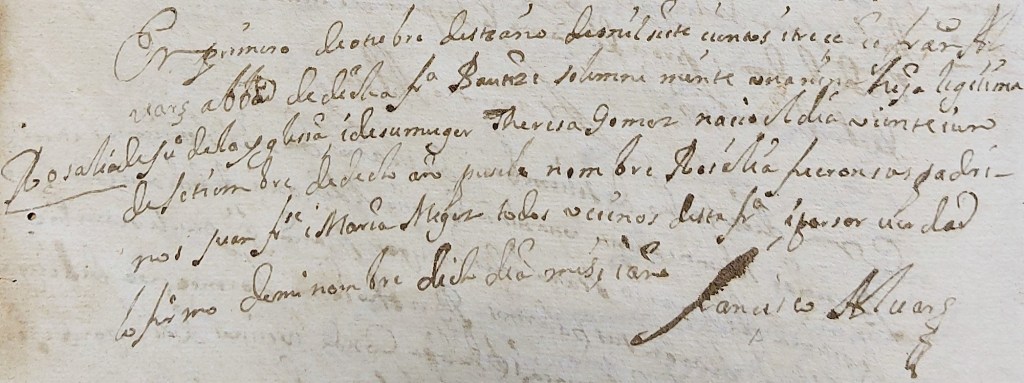 En primero de otubre deste año de mil siete cientos i trece io franco
Alvarz abbad de dcha fa Bautize solemne mente una niña hija legitima
Rosalia de Ju de la yglesia i de su muger Theresa Gomez nacio el dia veinte i un
de setiembre de decho año pusele nombre Rosalia fueron sus padri-
nos Juan frz i Maria Miguez todos vecinos desta fa i por ser verdad
lo firmo de mi nombre dicho dia mes i año
Francisco Alvarz